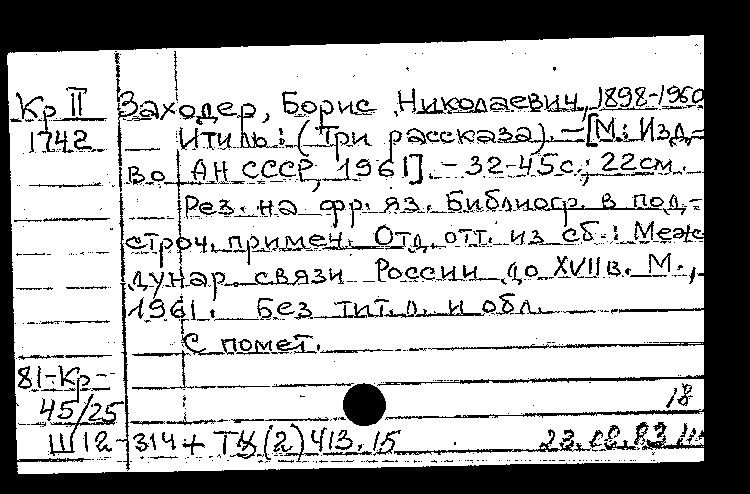 Кр II Заходер, Борис Николаевич, 1898-1960
1742 Итиль: (Три рассказа). - [М.: Изд-
во АН СССР, 1961]. - 32-45 с.; 22 см.
Рез. на фр. яз. Библиогр. в под-
строч. примеч. Отд. отт. из сб.: Меж
дунар. связи России до XVII в. М.,
1961. Без тит. л. и обл.
С помет.
81-Кр-
45/25 18
Ш 12-314+ТЦ(2)413.15 23.08.83